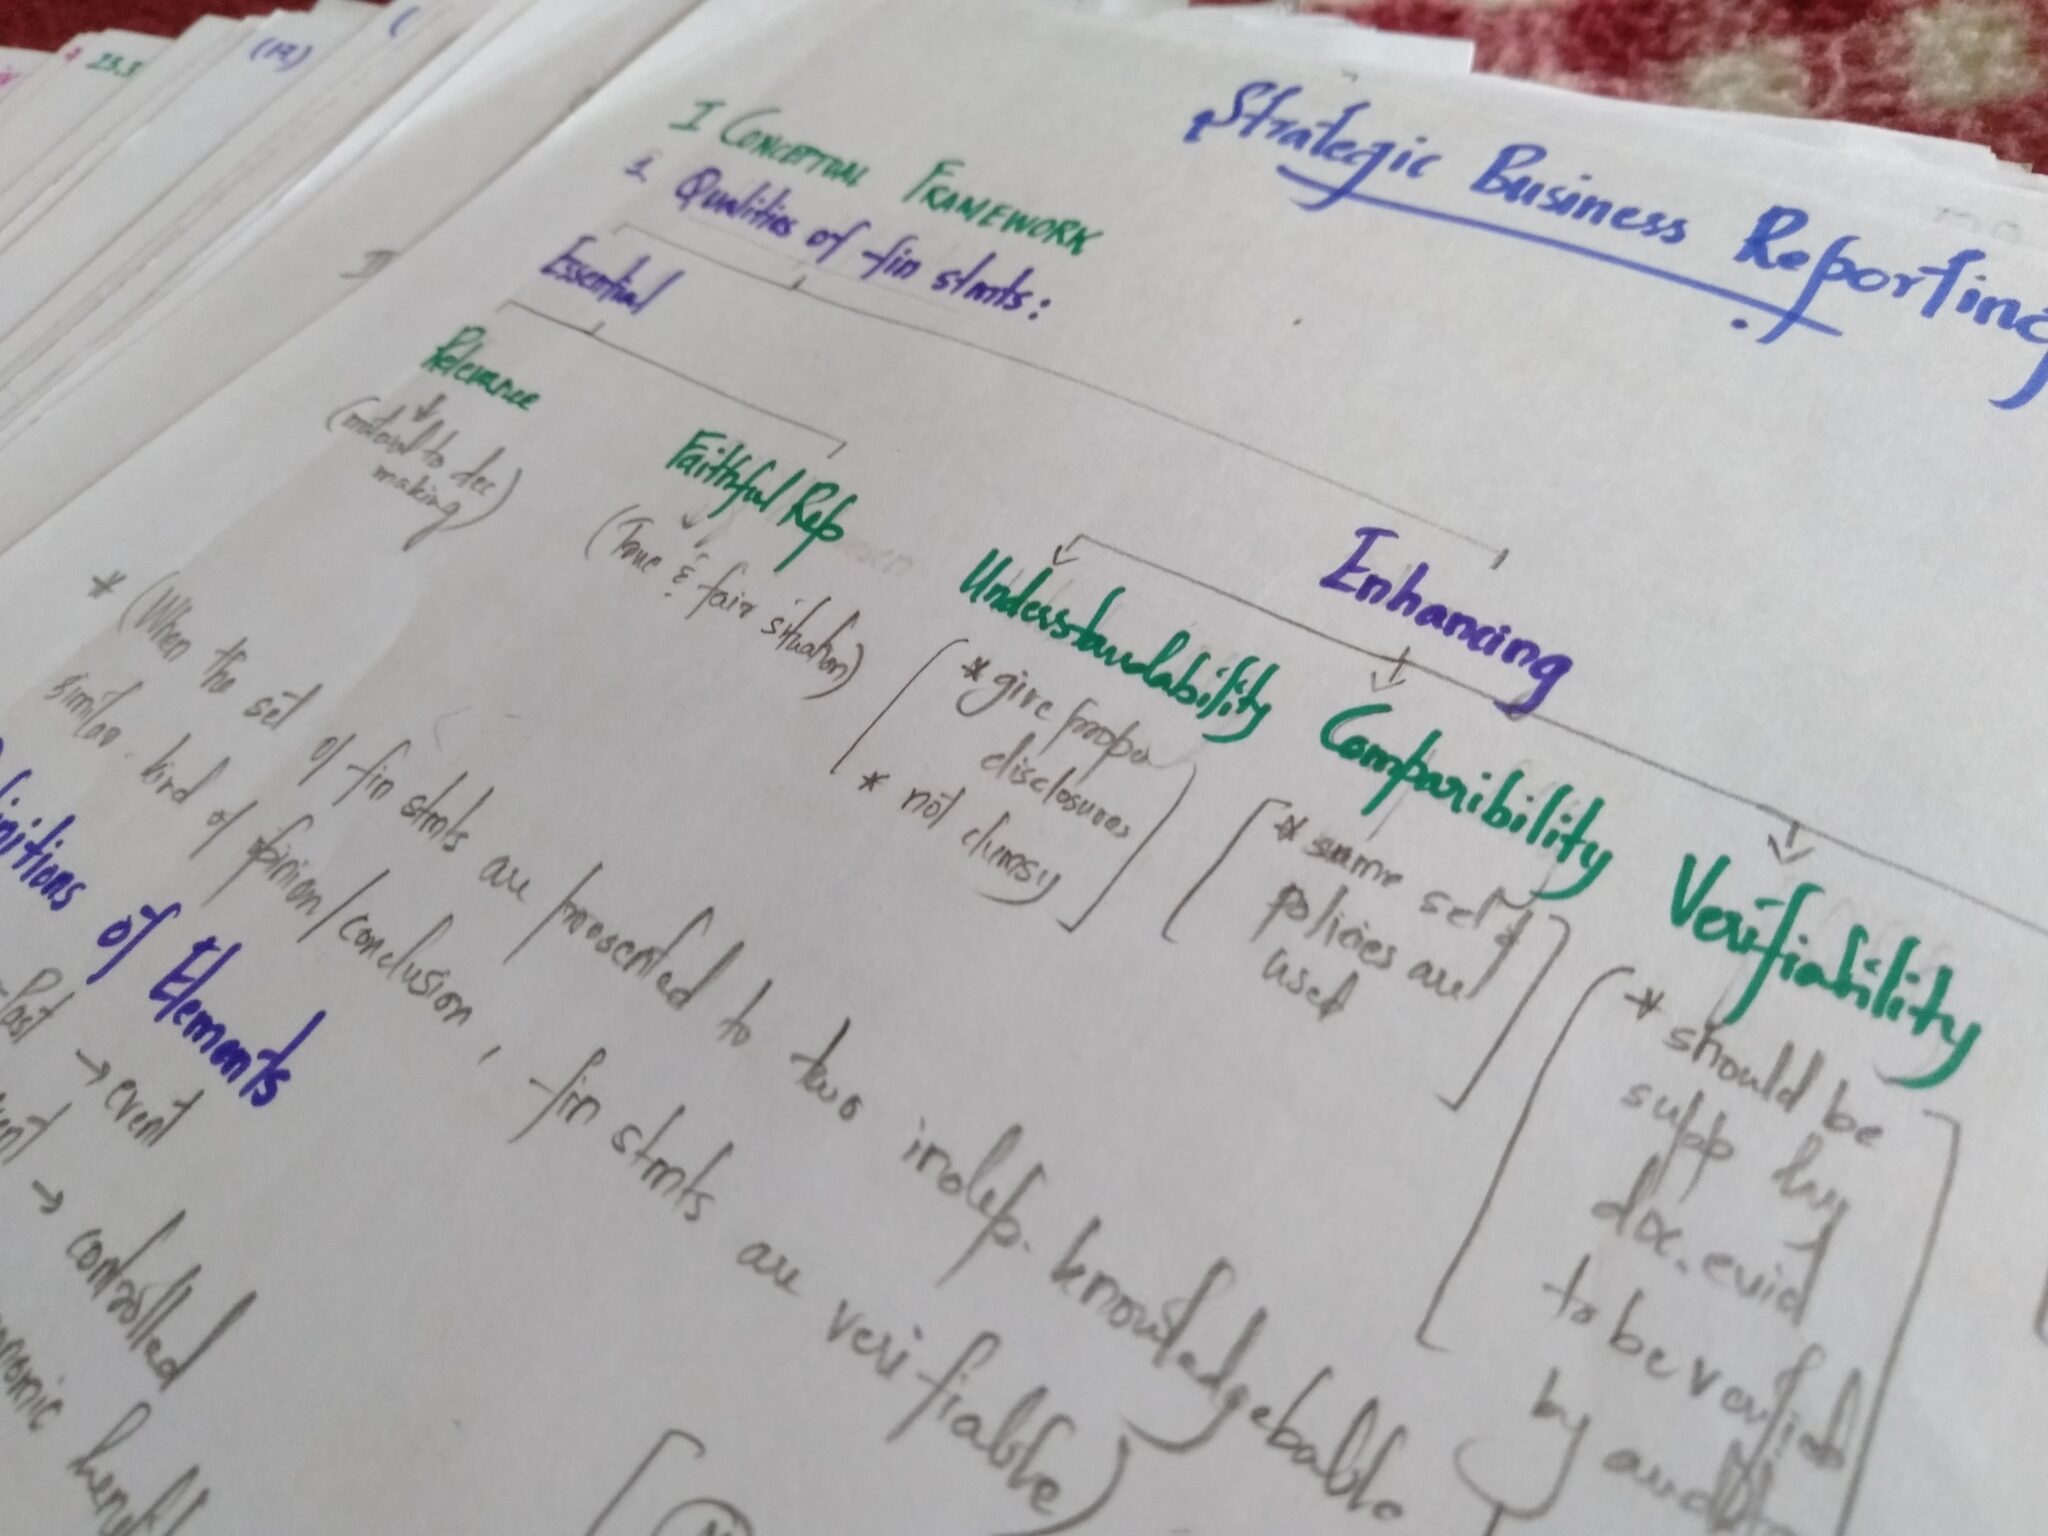 Strategic Business Reporting
I CONCEPTUAL FRAMEWORK
1. Qualities of fin stmts:
Essential
Enhancing
Relevance
(material to dec
making)
Faithful Rep
(True & fair situation)
Understandability
* give proper
disclosures
* not clumsy
Comparibility
* same set of
policies are
used
Verifiability
* should be
supp by
doc. evid
to be verified
by
* (When the set of fin stmts are presented to two indep. knowledgebable
similar kind of opinion/conclusion, fin stmts are verifiable)
of Elements
Past → event
→ controlled
23.3